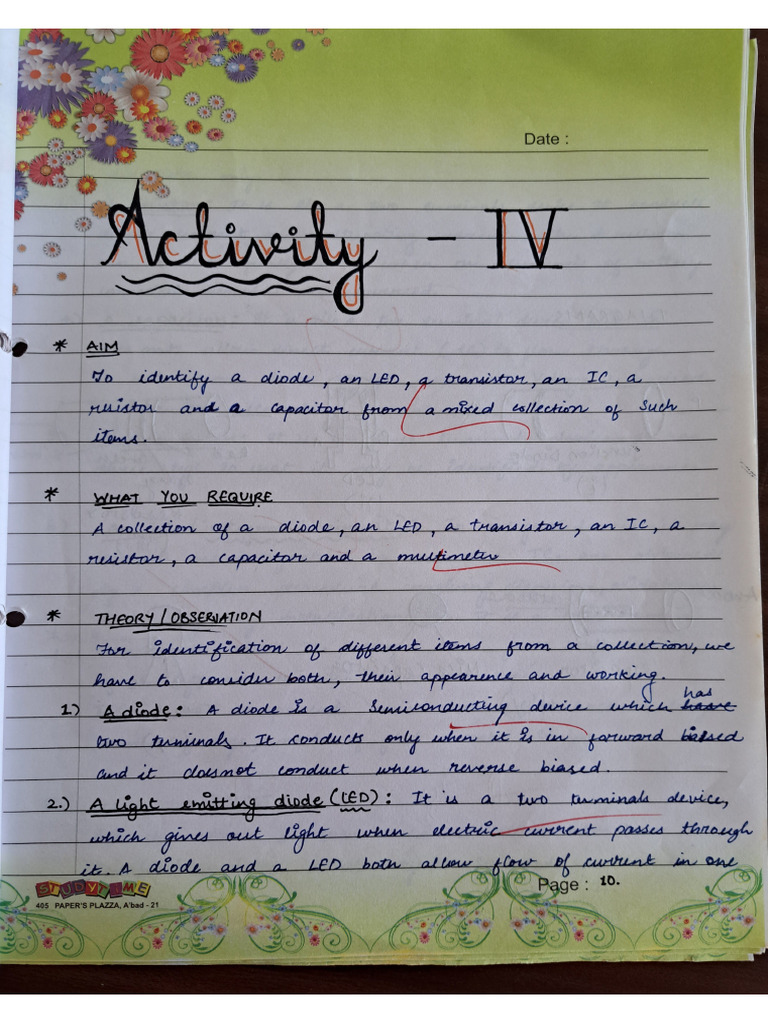 Date :
Activity - IV
* AIM
To identify a diode, an LED, a transistor, an IC, a
resistor and a capacitor from a mixed collection of such
items.
* WHAT YOU REQUIRE
A collection of a diode, an LED, a transistor, an IC, a
resistor, a capacitor and a multimeter
* THEORY / OBSERVATION
For identification of different items from a collection, we
have to consider both, their appearence and working.
1.) A diode: A diode is a semiconducting device which have has
two terminals. It conducts only when it is in forward biased
and it doesnot conduct when reverse biased.
2.) A light emitting diode (LED): It is a two terminals device,
which gives out light when electric current passes through
it. A diode and a LED both allow flow of current in one
STUDYTIME
405 PAPER'S PLAZZA, A'bad - 21
Page : 10.